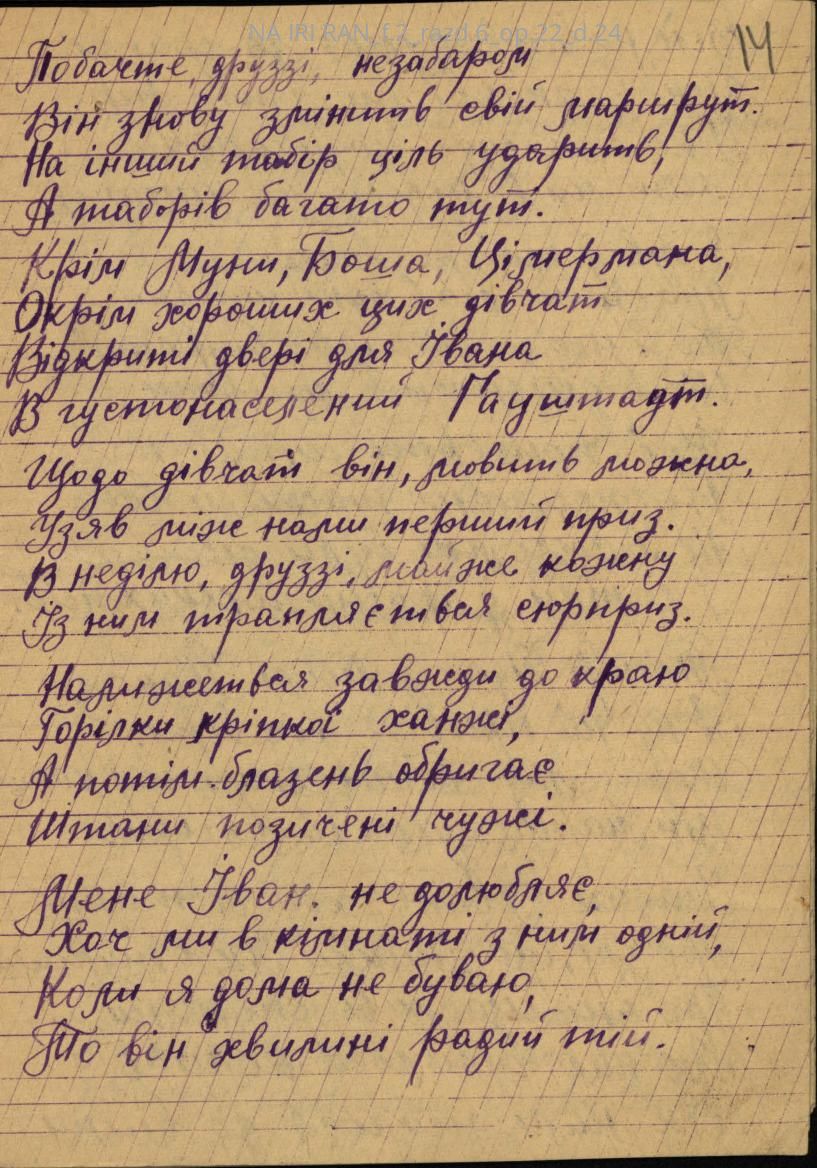 NA IRI RAN, f.2_razd.6_op.22_d.24
14
Побачте, друззі, незабаром
Він знову змінить свій маршрут.
На інший табір ціль ударить,
А таборів багато тут.
Крім Муни, Боша, Цімермана,
Окрім хороших цих дівчат
Відкриті двері для Івана
В густонаселений Гауштадт.
Щодо дівчат він, мовить можна,
Узяв між нами перший приз.
В неділю, друззі, майже кожну
Із ним трапляється сюрприз.
Налижеться завжди до краю
Горілки кріпкої ханжі,
А потім блазень обригає
Штани позичені чужі.
Мене Іван не долюбляє,
Хоч ми в кімнаті з ним одній,
Коли я дома не буваю,
То він хвилині радий тій.